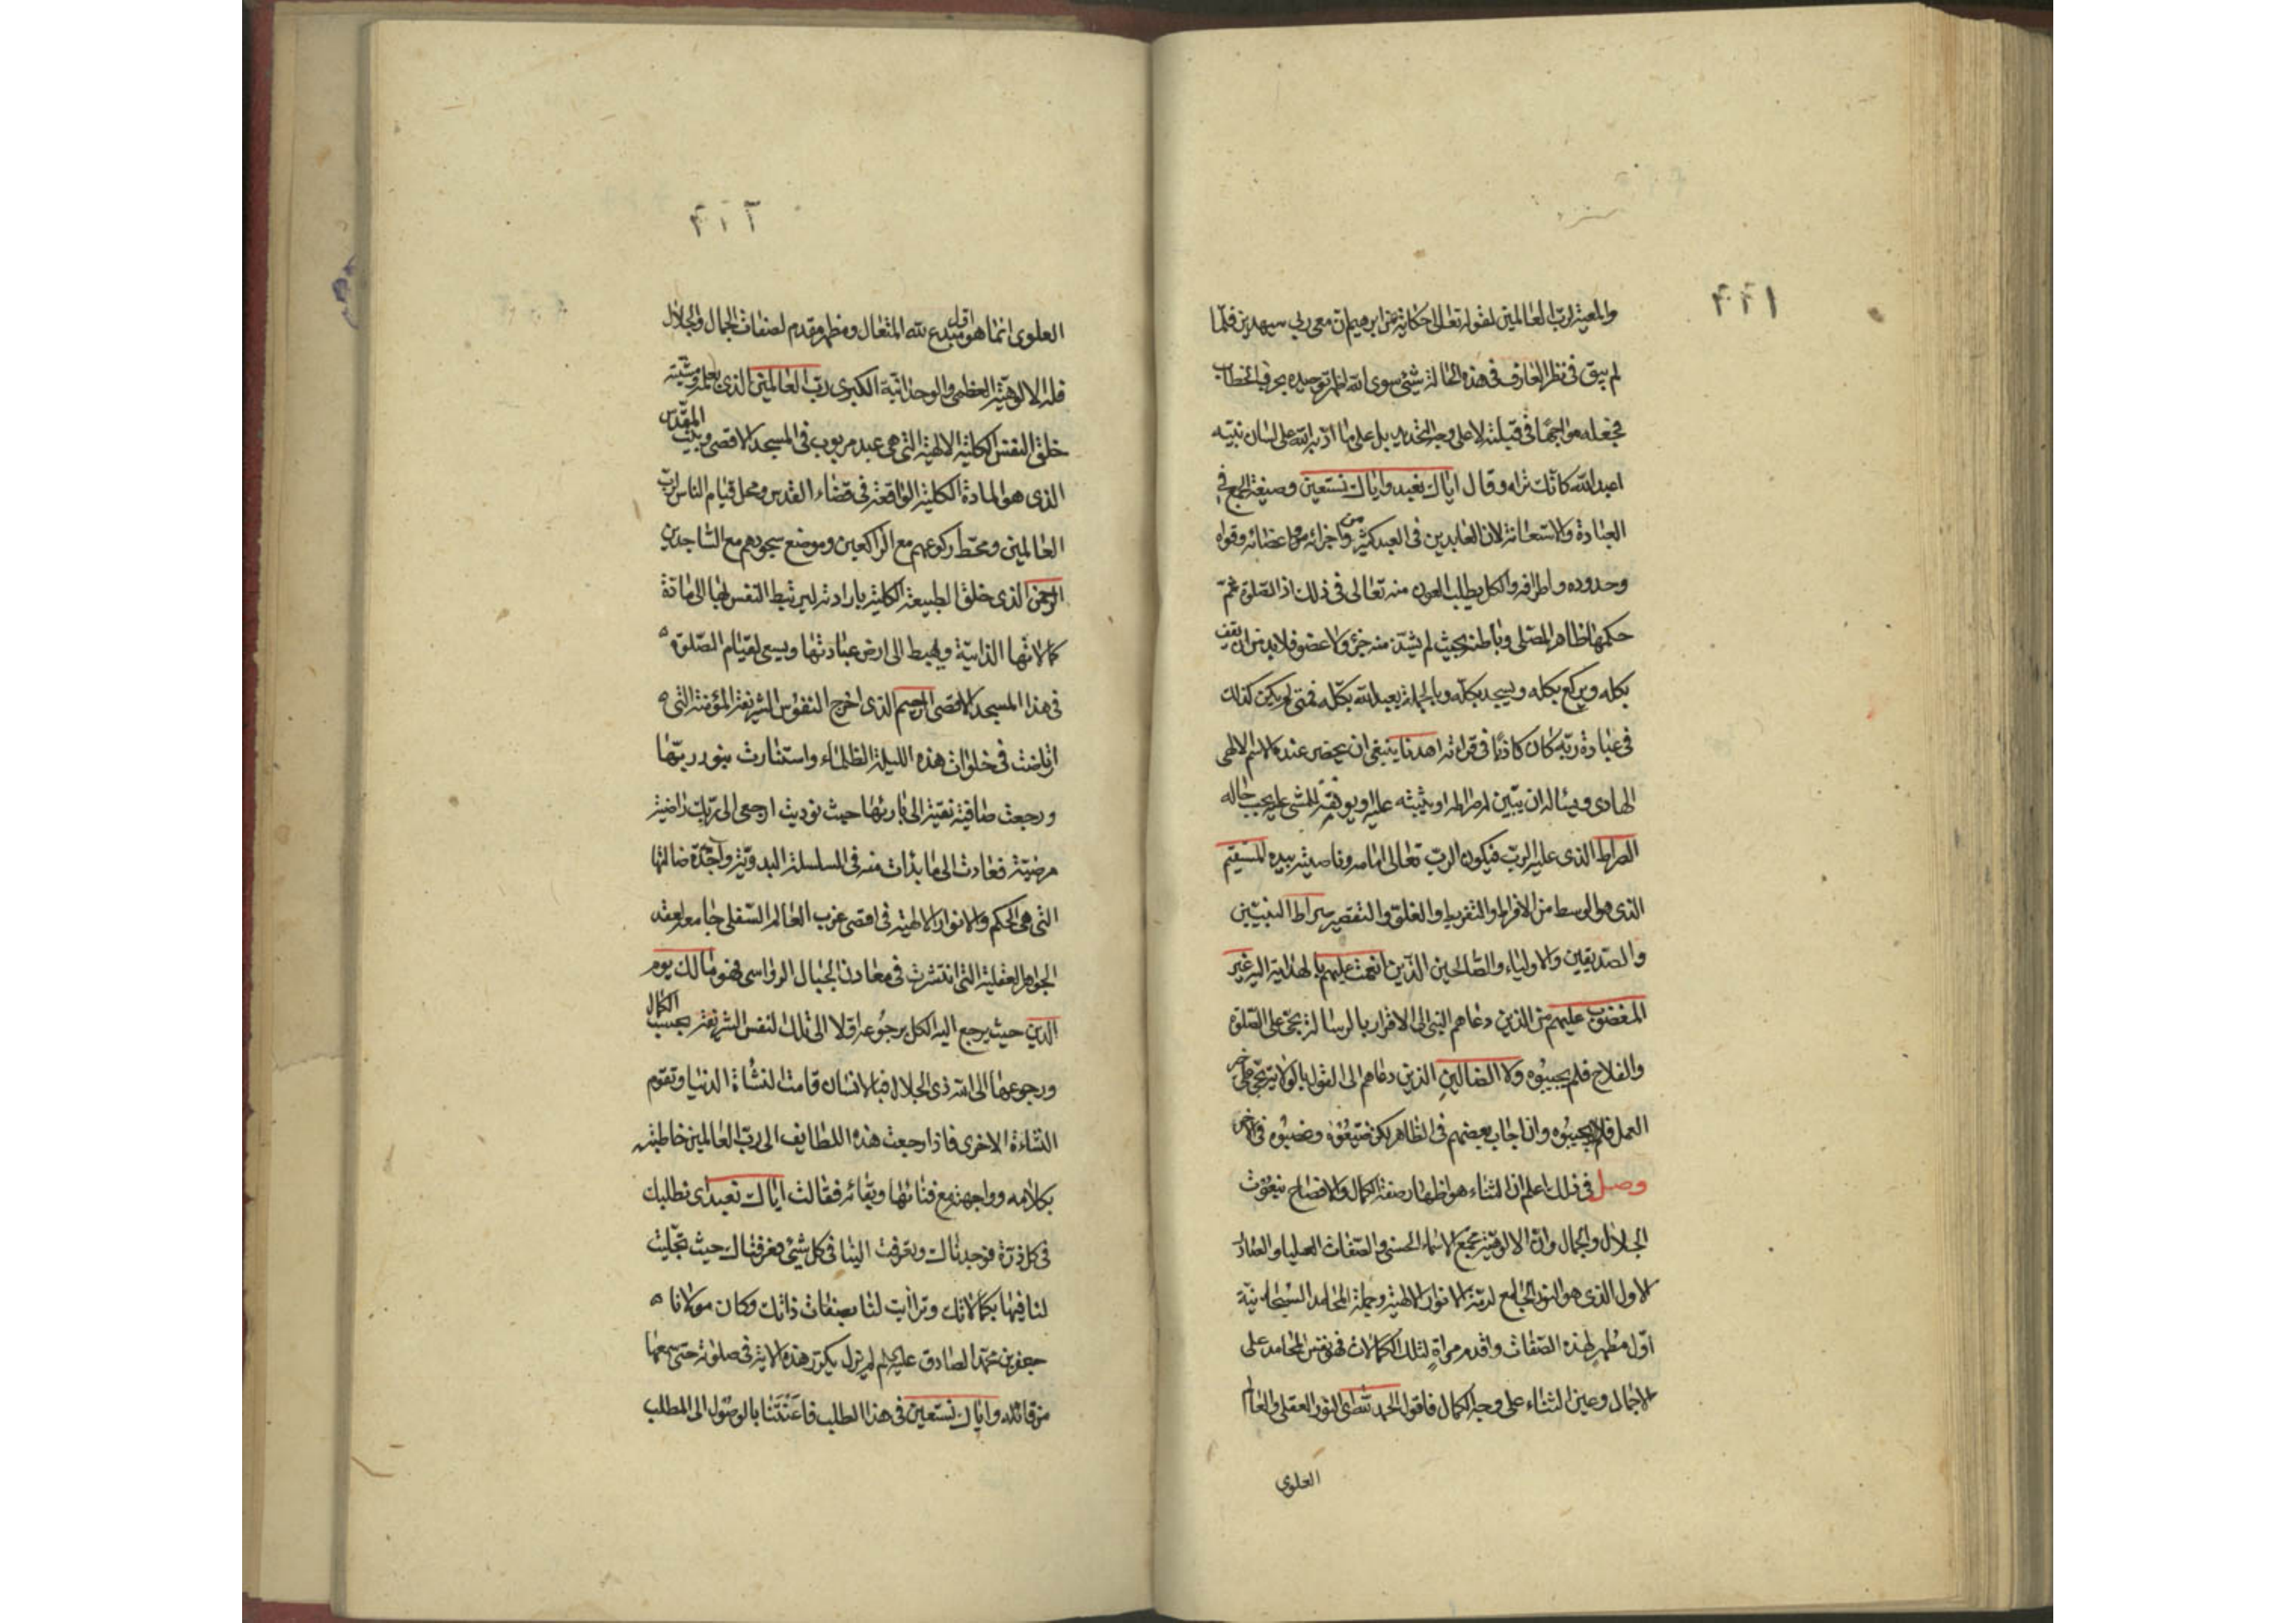 ٢٢١
والمعية لرب العالمين لقوله تعالى حكاية عن ابرهيم ان معى ربى سيهدين فلما
لم يبق فى نظر العارف فى هذه الحالة شئ سوى الله اظهر توحيده بحرف الخطاب
فجعله مواجها فى قبلته لا على وجه التحديد بل على ما ادّبه الله على لسان نبيّه
اعبد الله كانّك تراه وقال ايّاك نعبد وايّاك نستعين وصيغة الجمع فى
العبادة والاستعانة لان العابدين فى العبد كثير من اجزائه واعضائه وقواه
وحدوده واطرافه والكل يطلب العون منه تعالى فى ذلك اذ الصّلوة عمّ
حكمها ظاهر المصلى وباطنه بحيث لم يشذّ منه جزء ولا عضو فلابد من ان يقف
بكله ويركع بكله ويسجد بكله وبالجملة يعبد الله بكلّه فمتى لم يكن كذلك
فى عبادة ربّه كان كاذبًا فى قرائته اهدنا ينبغى ان يحضر عنده الاسم الالهى
الهادى ويسئاله ان يبيّن له صراطه او يثبته عليه او يوفقه للمشى عليه بحسب حاله
الصراط الذى عليه الربّ فيكون الربّ تعالى امامه وناصيته بيده المستقيم
الذى هو الوسط من الافراط والتفريط والغلوّ والتقصير صراط النبيّين
والصدّيقين والاولياء والصّالحين الذين انعمت عليهم بالهداية اليه غير
المغضوب عليهم من الذين دعاهم النبى الى الاقرار بالرسالة بحىّ على الصّلوة
والفلاح فلم يجيبوه ولا الضالين الذين دعاهم الى القول بالولاية بحىّ على خير
العمل فلم يجيبوه وان اجاب بعضهم فى الظاهر لكن ضيعوه فى الآخر
وصل فى ذلك اعلم ان الثناء هو اظهار صفة الكمال والافصاح بنعوت
الجلال والجمال وان الالوهيّة تجمع الاسماء الحسنى والصّفات العليا والعقل
الاول الذى هو النور الجامع لدمّة الانوار الالهية وجملة المحامد السبحانية
اوّل مظهر لهذه الصّفات واقدم مرآة لتلك الكمالات فهو نفس المحامد على
الاجمال وعين الثناء على وجه الكمال فاقول الحمد لله اى النور العقلى والعالم
العلوى
٢١٢
العلوى انما هو اوّل مبدع لله المتعال ومظهر مقدم لصفات الجمال والجلال
فله الالوهيّة العظمى والوحدانيّة الكبرى ربّ العالمين الذى بعلمه ومشيّته
خلق النفس الكلية الالهية التى هى عبد مربوب فى المسجد الاقصى وبيت المقدّس
الذى هو المادة الكلية الواقعة فى فضاء القدس ومحل قيام الناس لربّ
العالمين ومحطّ ركوعهم مع الراكعين وموضع سجودهم مع السّاجدين
الرّحمن الذى خلق الطبيعة الكلية بارادته ليرتبط النفس لها الى مادة
كمالاتها الذاتيّة ويهبط الى ارض عبادتها ويسعى لقيام الصّلوة
فى هذا المسجد الاقصى الرحيم الذى اخرج النفوس الشريفة المؤمنة التى
ارتاضت فى خلوات هذه الليلة الظلماء واستنارت بنور ربّها
ورجعت صافية نقيّة الى بارئها حيث نوديت ارجعى الى ربّك راضية
مرضيّة فعادت الى ما بدات منه فى السلسلة البدويّة واجدة ضالتها
التى هى الحكم والانوار الالهية فى اقصى غرب العالم السّفلى جامعة لعقد
الجواهر العقلية التى انتشرت فى معادن الجبال الرواسى فهو مالك يوم
الدين حيث يرجع اليه الكل برجوعه اوّلا الى تلك النفس الشريفة بحسب الكمال
ورجوعها الى الله ذى الجلال فبالانسان قامت النشأة الدنيا وتقوم
النشاءة الاخرى فاذا رجعت هذه اللطايف الى ربّ العالمين خاطبته
بكلامه وواجهته مع فنائها وبقائه فقالت ايّاك نعبد اى نطلبك
فى كل ذرّة فوجدناك وتعرّفت الينا فى كل شئ فعرفناك حيث تجلّيت
لنا فيها بكمالاتك وترايت لنا بصفات ذاتك وكان مولانا
جعفر بن محمّد الصادق عليه السلم لم يزل يكرّر هذه الاية فى صلوته حتى سمعها
من قائله وايّاك نستعين فى هذا الطلب فاعنتنا بالوصول الى المطلب